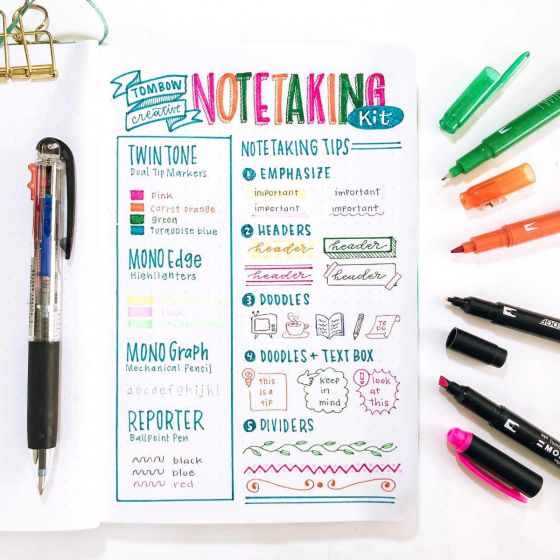 TOMBOW
creative
NOTETAKING
Kit
TWINTONE
Dual Tip Markers
Pink
Carrot orange
Green
Turquoise blue
MONO Edge
Highlighters
Pink
MONO Graph
Mechanical Pencil
abcdefghijkl
REPORTER
BallPoint Pen
black
blue
red
NOTETAKING TIPS
1 EMPHASIZE
important important
important important
2 HEADERS
header header
header header
3 DOODLES
TO
DO
4 DOODLES + TEXT BOX
this
is a
tip
keep
in
mind
! look
at
this
5 DIVIDERS